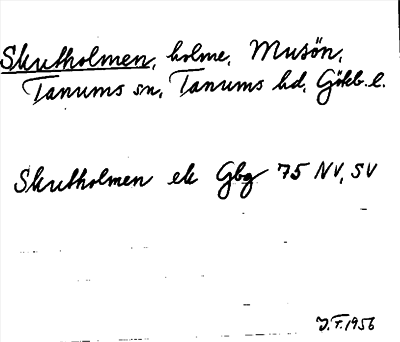 Skutholmen, holme, Musön,
Tanums sn, Tanums hd, Gökb. l.
Skutholmen ek Gbg 75 NV, SV
J.F. 1956